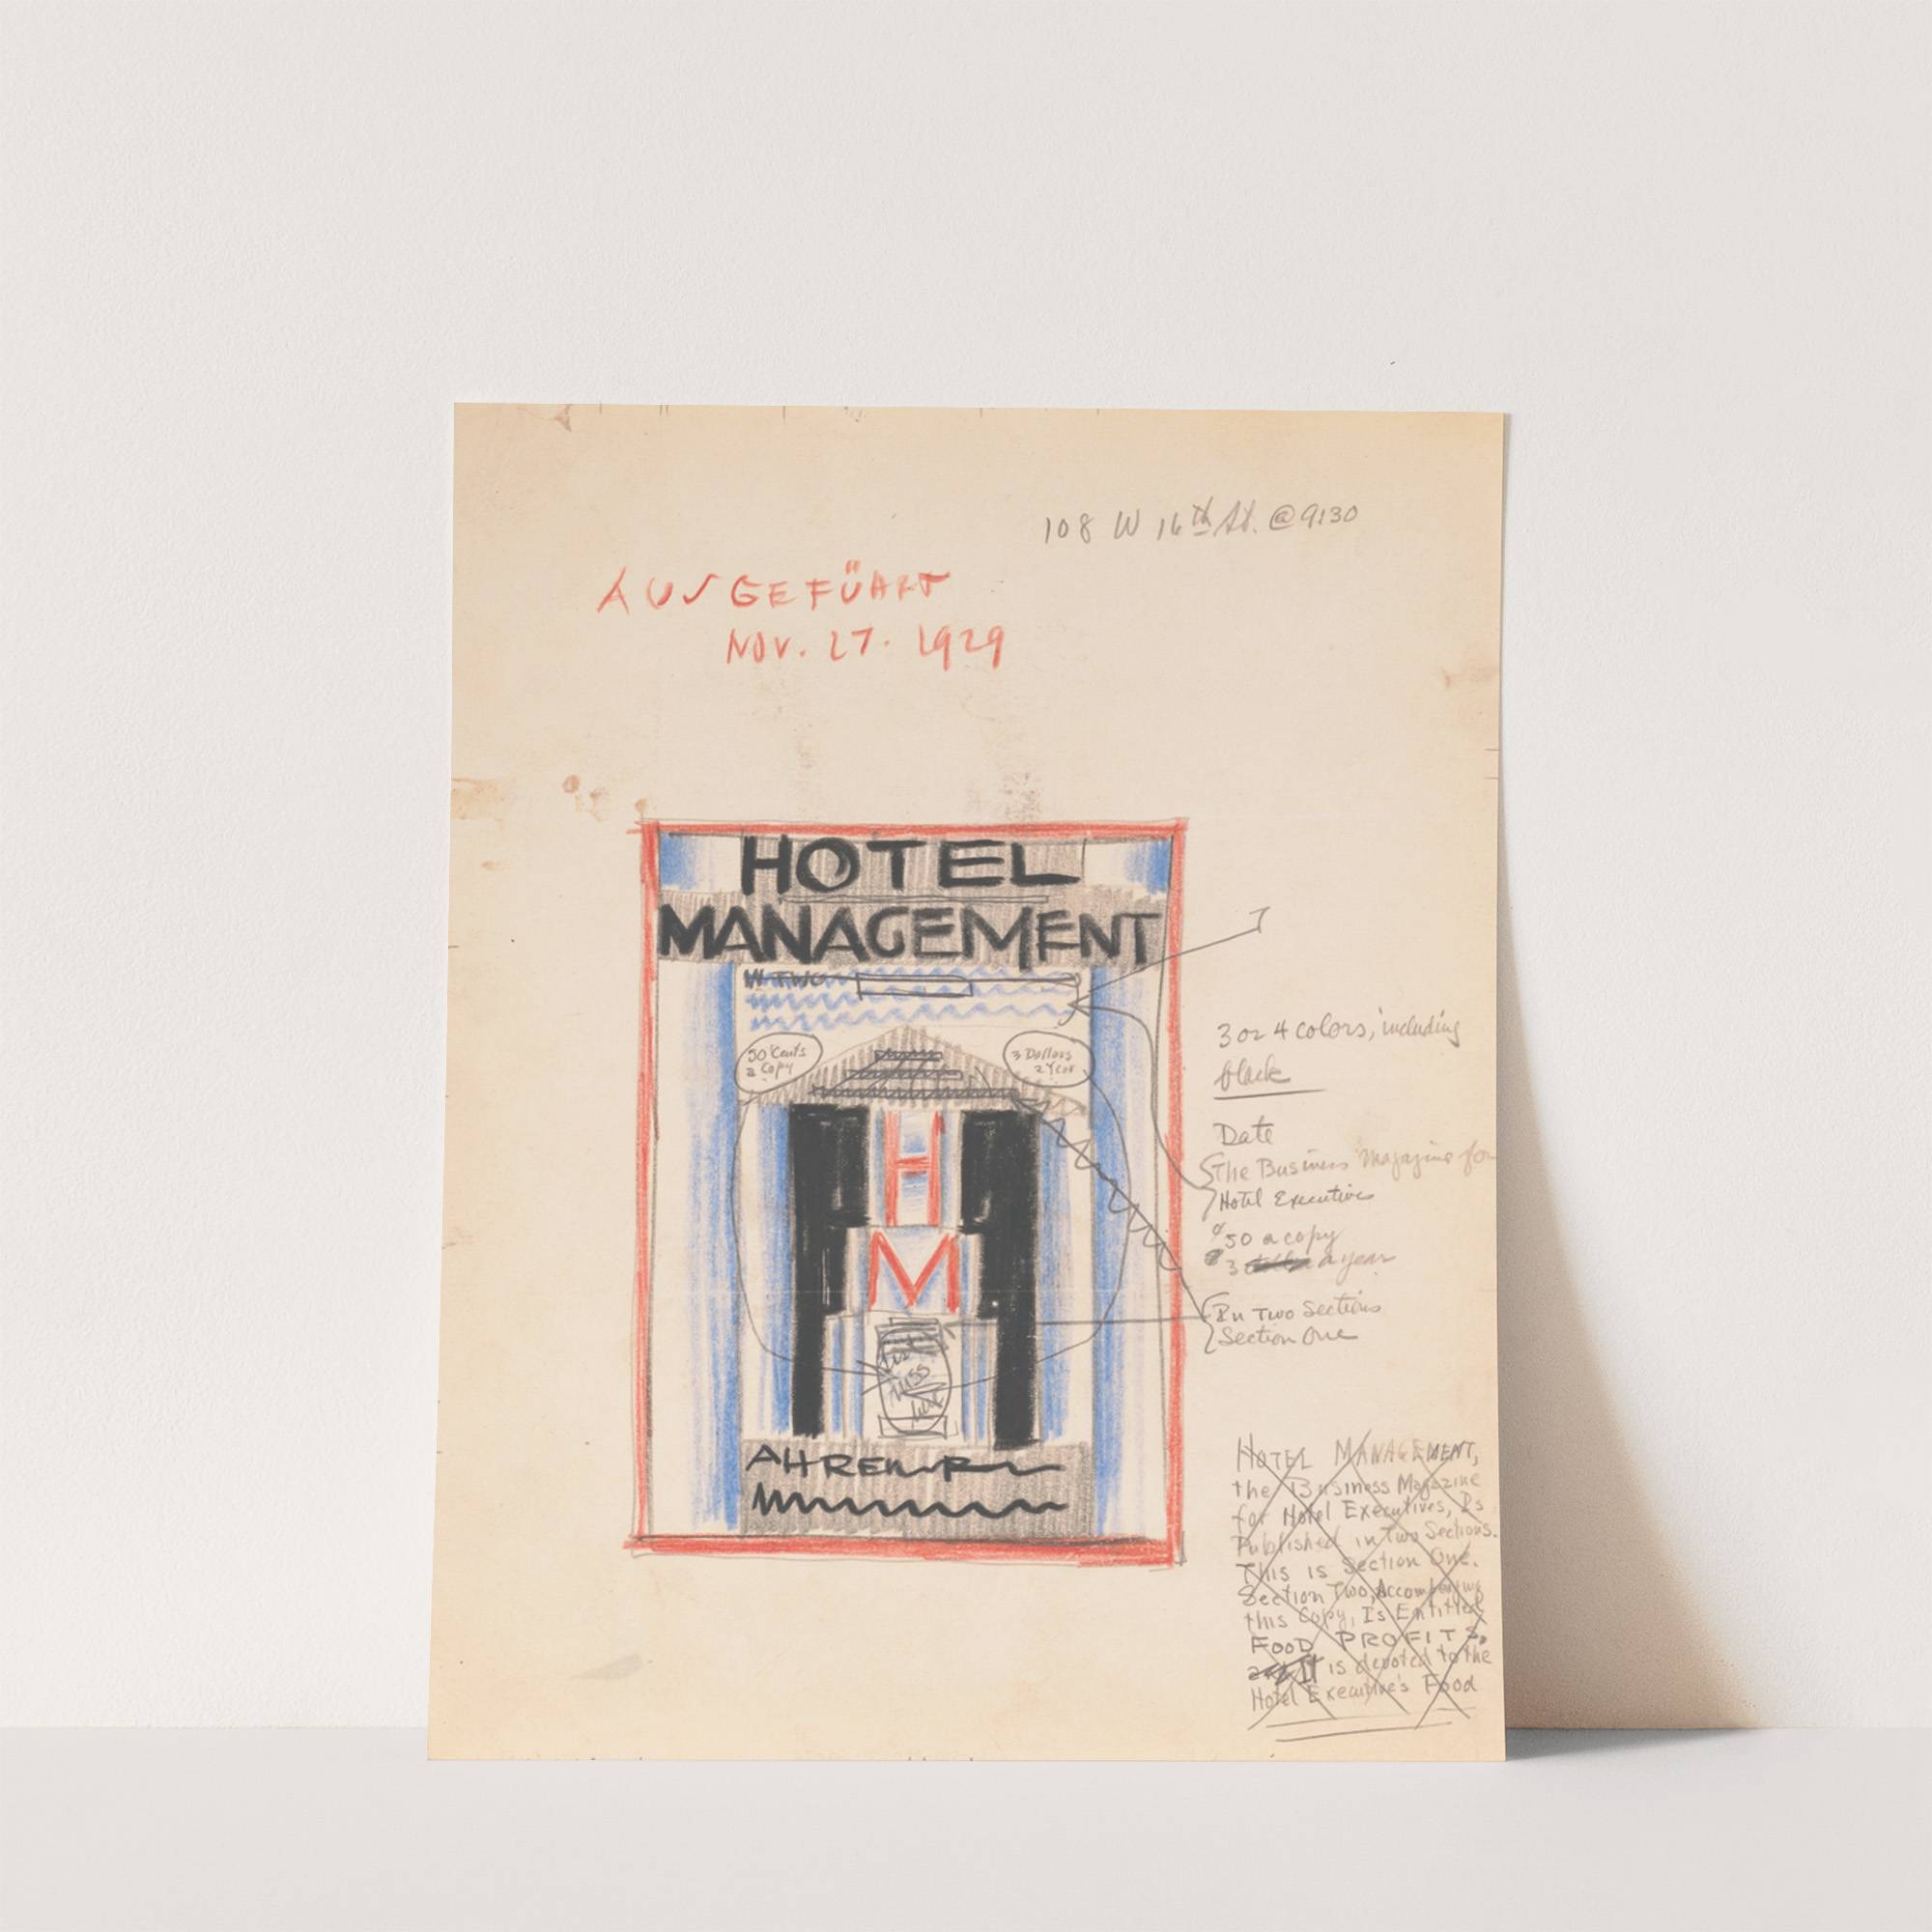 108 W 16th St. @ 9130
AUSGEFÜHRT
NOV. 27. 1929
HOTEL
MANAGEMENT
IN TWO
50 Cents
a Copy
3 Dollars
a Year
H
M
AHREN
3 or 4 colors, including
black
Date
The Business Magazine for
Hotel Executives
50 a copy
3 a year
In Two Sections
Section One
HOTEL MANAGEMENT,
the Business Magazine
for Hotel Executives, Is
Published in Two Sections.
This is Section One.
Section Two, Accompanying
this Copy, Is Entitled
FOOD PROFITS,
It is devoted to the
Hotel Executive's Food